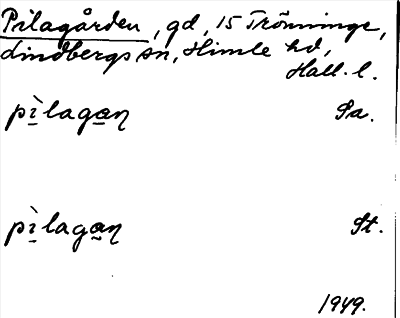 Pilagården, gd, 15 Trönninge,
Lindbergs sn, Himle hd,
Hall. l.
pìlagan̥ Sa.
pìlagan̥ St.
1949.